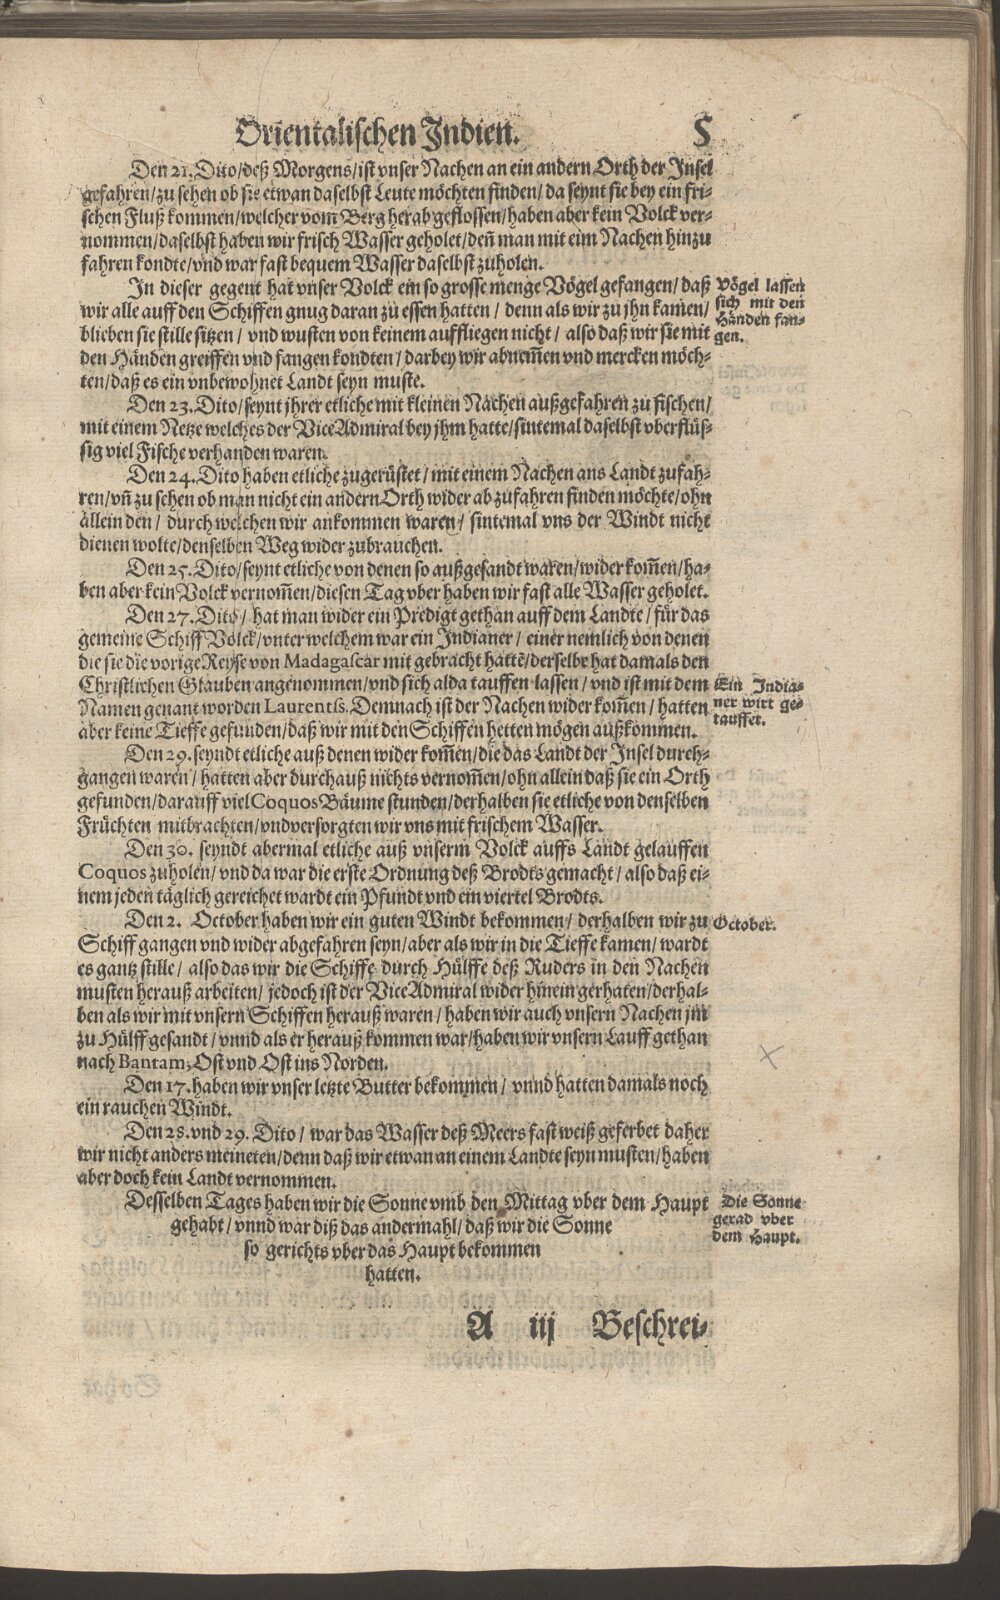 Orientalischen Indien. 5
Den 21. Dito/deß Morgens/ist vnser Nachen an ein andern Orth der Insel
gefahren/zu sehen ob sie etwan daselbst Leute möchten finden/da seynt sie bey ein fri-
schen Fluß kommen/welcher vom Berg herab geflossen/haben aber kein Volck ver-
nommen/daselbst haben wir frisch Wasser geholet/deñ man mit eim Nachen hinzu
fahren kondte/vnd war fast bequem Wasser daselbst zuholen.
In dieser gegent hat vnser Volck ein so grosse menge Vögel gefangen/daß
wir alle auff den Schiffen gnug daran zu essen hatten/denn als wir zu jhn kamen/
blieben sie stille sitzen/vnd wusten von keinem auffliegen nicht/also daß wir sie mit
den Händen greiffen vnd fangen kondten/darbey wir abnem̃en vnd mercken möch-
ten/daß es ein vnbewohnet Landt seyn muste.
Vögel lassen
sich mit den
Händen fan-
gen.
Den 23. Dito/seynt jhrer etliche mit kleinen Nachen außgefahren zu fischen/
mit einem Netze welches der ViceAdmiral bey jhm hatte/sintemal daselbst vberflüs-
sig viel Fische verhanden waren.
Den 24. Dito haben etliche zugerüstet/mit einem Nachen ans Landt zufah-
ren/vñ zu sehen ob man nicht ein andern Orth wider ab zufahren finden möchte/ohn
allein den/durch welchen wir ankommen waren/sintemal vns der Windt nicht
dienen wolte/denselben Weg wider zubrauchen.
Den 25. Dito/seynt etliche von denen so außgesandt waren/wider kom̃en/ha-
ben aber kein Volck vernom̃en/diesen Tag vber haben wir fast alle Wasser geholet.
Den 27. Dito/hat man wider ein Predigt gethan auff dem Landte/für das
gemeine Schiff Volck/vnter welchem war ein Indianer/einer nemlich von denen
die sie die vorige Reyse von Madagascar mit gebracht hattẽ/derselbe hat damals den
Christlichen Glauben angenommen/vnd sich alda tauffen lassen/vnd ist mit dem
Namen genant worden Laurentss. Demnach ist der Nachen wider kom̃en/hatten
aber keine Tieffe gefunden/daß wir mit den Schiffen hetten mögen außkommen.
Ein India-
ner wirt ge-
tauffet.
Den 29. seyndt etliche auß denen wider kom̃en/die das Landt der Insel durch-
gangen waren/hatten aber durchauß nichts vernom̃en/ohn allein daß sie ein Orth
gefunden/darauff viel Coquos Bäume stunden/derhalben sie etliche von denselben
Früchten mitbrachten/vnd versorgten wir vns mit frischem Wasser.
Den 30. seyndt abermal etliche auß vnserm Volck auffs Landt gelauffen
Coquos zuholen/vnd da war die erste Ordnung deß Brodts gemacht/also daß ei-
nem jeden täglich gereichet wardt ein Pfundt vnd ein viertel Brodts.
Den 2. October haben wir ein guten Windt bekommen/derhalben wir zu
October.
Schiff gangen vnd wider abgefahren seyn/aber als wir in die Tieffe kamen/wardt
es gantz stille/also das wir die Schiffe durch Hülffe deß Ruders in den Nachen
musten herauß arbeiten/jedoch ist der ViceAdmiral wider hinein gerhaten/derhal-
ben als wir mit vnsern Schiffen herauß waren/haben wir auch vnsern Nachen jm
zu Hülff gesandt/vnnd als er herauß kommen war/haben wir vnsern Lauff gethan
nach Bantam, Ost vnd Ost ins Norden.
Den 17. haben wir vnser letzte Butter bekommen/vnnd hatten damals noch
ein rauchen Windt.
Den 28. vnd 29. Dito/war das Wasser deß Meers fast weiß geferbet daher
wir nicht anders meineten/denn daß wir etwan an einem Landte seyn musten/haben
aber doch kein Landt vernommen.
Desselben Tages haben wir die Sonne vmb den Mittag vber dem Haupt
gehabt/vnnd war diß das andermahl/daß wir die Sonne
so gerichts vber das Haupt bekommen
hatten.
Die Sonne
gerad vber
dem Haupt.
A iij Beschrei-